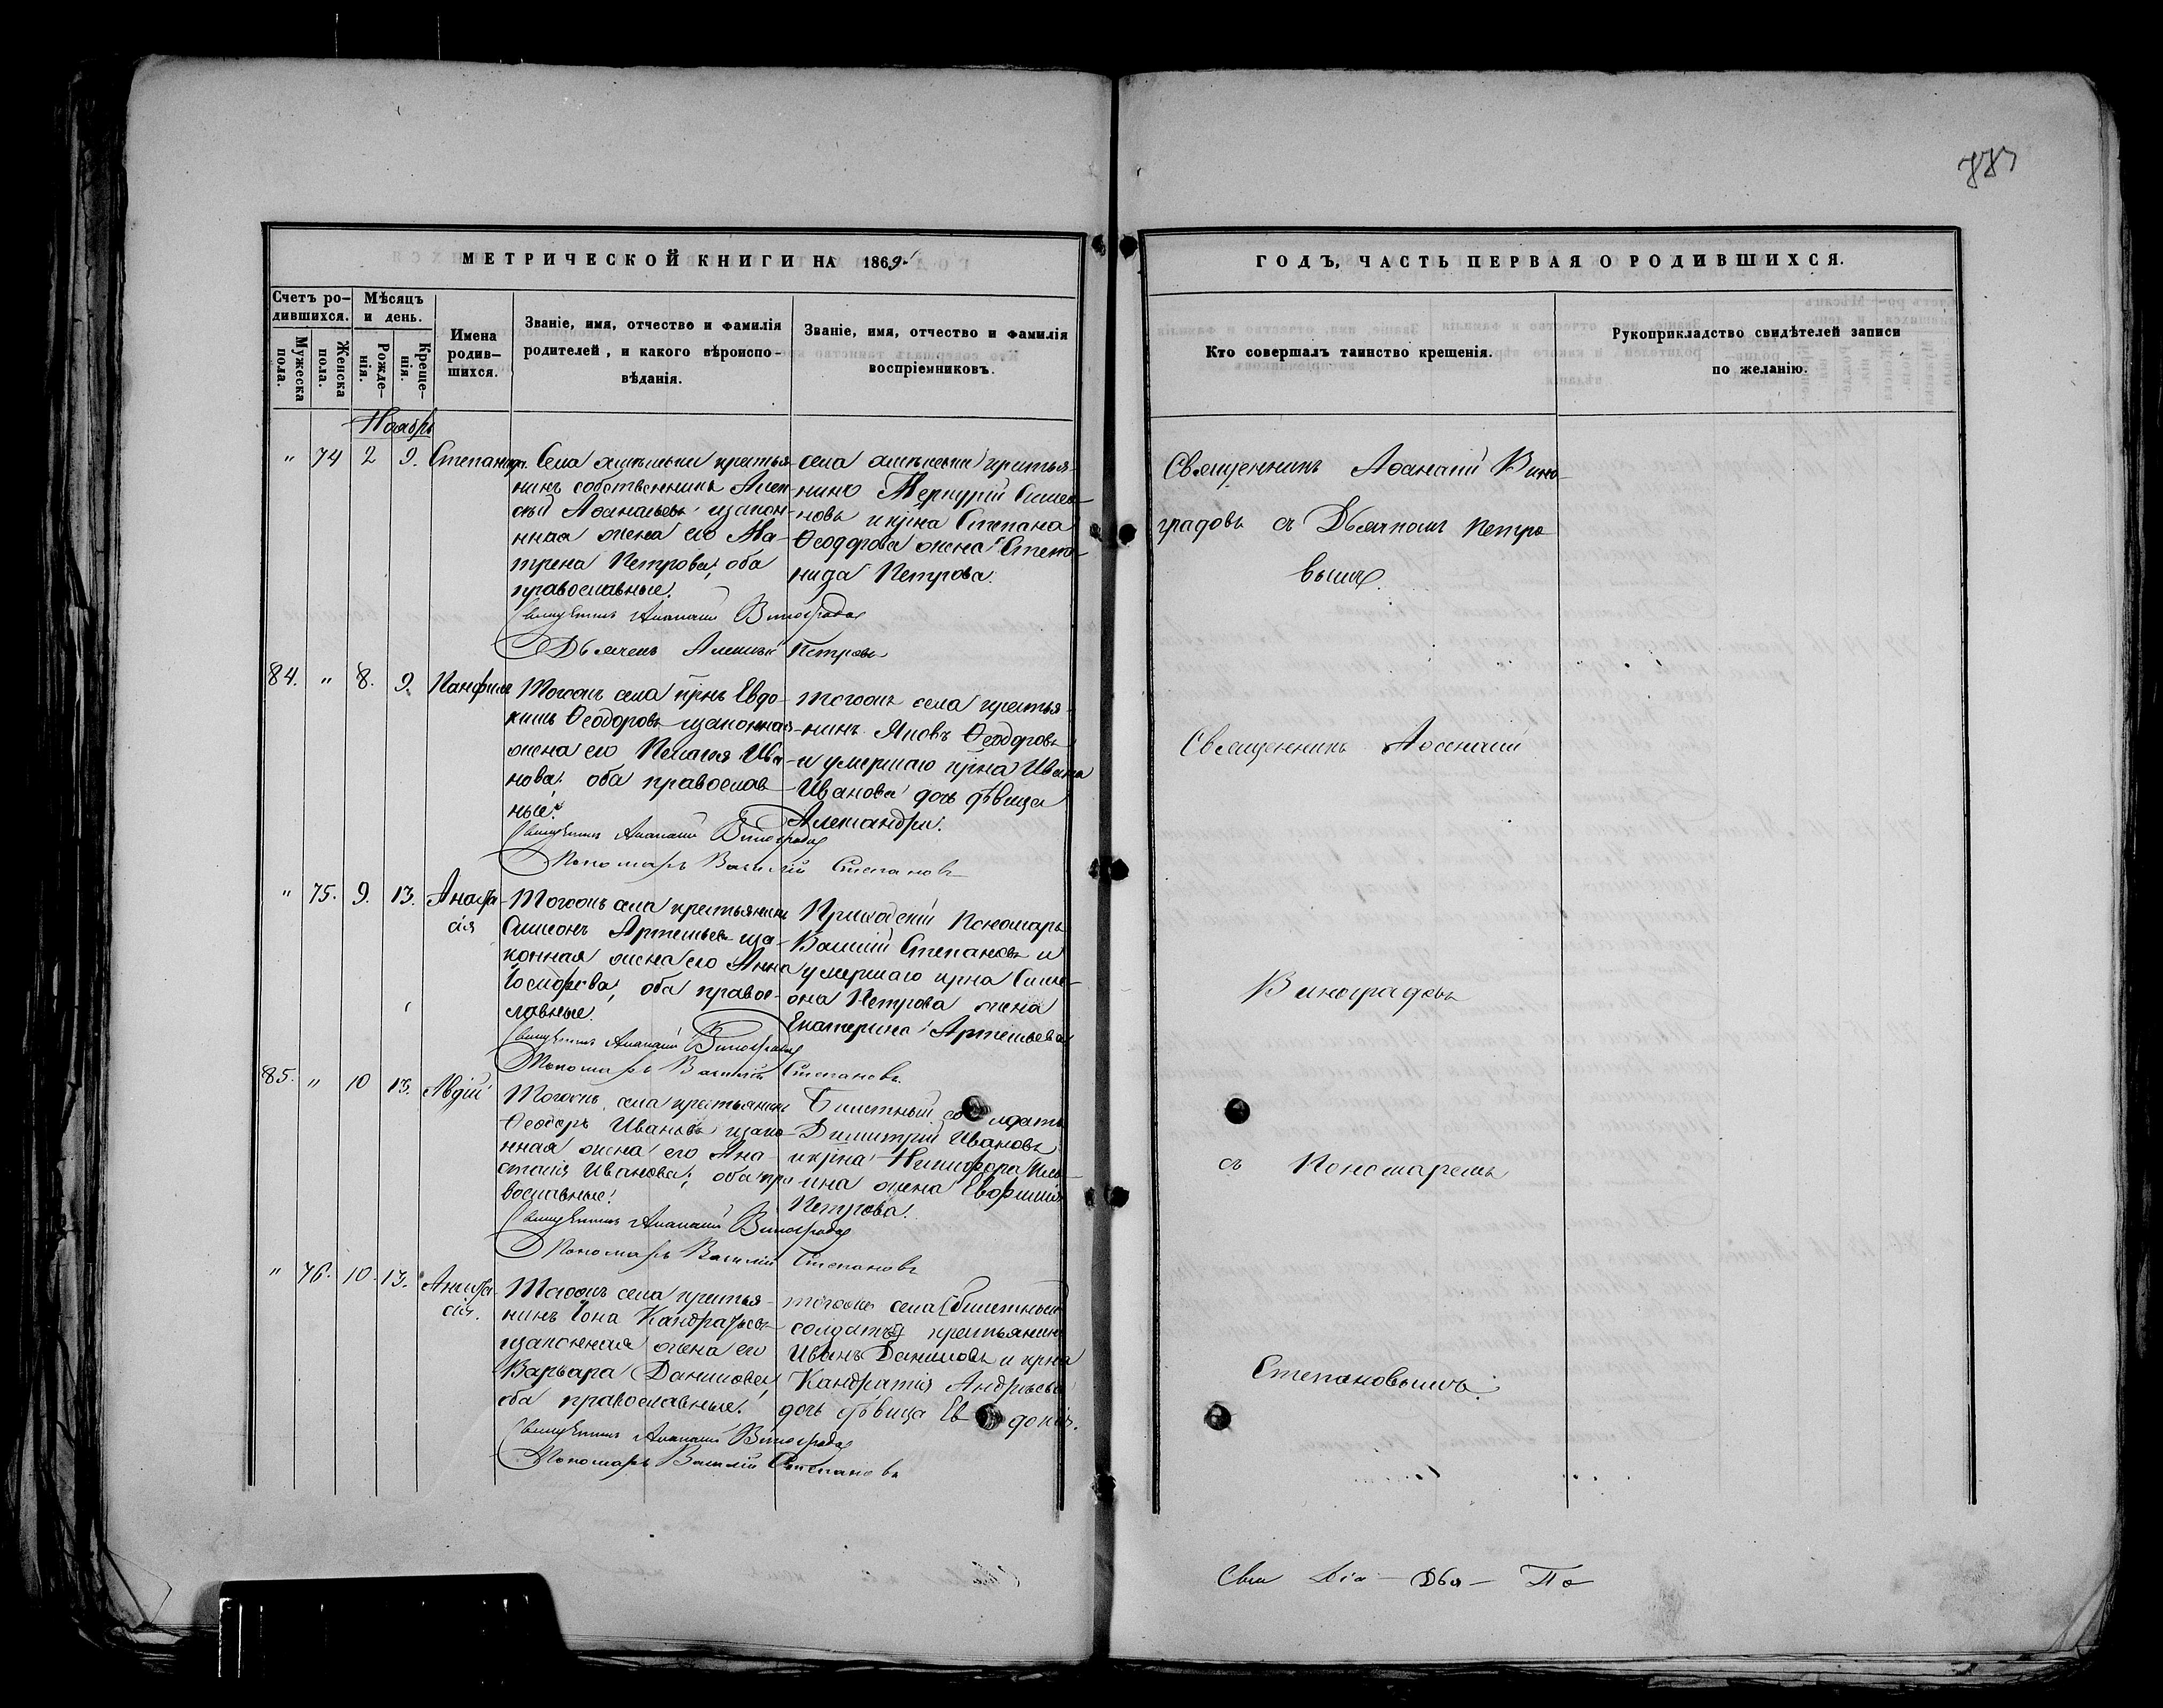 883
МЕТРИЧЕСКОЙ КНИГИ НА 1869
ГОДЪ, ЧАСТЬ ПЕРВАЯ О РОДИВШИХСЯ.
Счетъ ро-
дившихся.
Мужеска
пола.
Женска
пола.
Мѣсяцъ
и день.
Рожде-
нія.
Креще-
нія.
Имена
родив-
шихся.
Званіе, имя, отчество и фамилія
родителей, и какого вѣроиспо-
вѣданія.
Званіе, имя, отчество и фамилія
воспріемниковъ.
Кто совершалъ таинство крещенія.
Рукоприкладство свидѣтелей записи
по желанію.
Ноябрь
" 74 2 9.
Села крестья-
нинъ собственникъ Алек-
сѣй Аѳанасьевъ изакон-
ная жена его Ма-
трена Петрова, оба
православные.
Священникъ Аѳанасій Виноградовъ
Дьячекъ Алексѣй Петровъ
села крестья-
нинъ Меркурій Симео-
новъ икрна Степана
Ѳеодорова жена Степа-
нида Петрова.
Священникъ Аѳанасій Вино-
градовъ съ Дьячкомъ Петро-
вымъ.
84. " 8. 9. Панфилъ
Тогожъ села крнъ Евдо-
кимъ Ѳеодоровъ изаконная
жена его Пелагія Ива-
нова, оба православ-
ные.
Священникъ Аѳанасій Виноградовъ
Пономарь Василій Степановъ
тогожъ села крестья-
нинъ Яковъ Ѳеодоровъ
и умершаго крна Ивана
Иванова дочь дѣвица
Александра.
Священникъ Аѳанасій
" 75. 9. 13. Анаста-
сія
Тогожъ села крестьянинъ
Симеонъ Артемьевъ иза-
конная жена его Анна
Іосифова, оба право-
славные.
Священникъ Аѳанасій Виноградовъ
Пономарь Василій Степановъ.
Приходскій Пономарь
Василій Степановъ и
умершаго крна Симе-
она Петрова жена
Екатерина Артемьева
Виноградовъ
85. " 10 13. Авдій
Тогожъ села крестьянинъ
Ѳеодоръ Ивановъ изако-
нная жена его Ана-
стасія Иванова, оба пра-
вославные.
Священникъ Аѳанасій Виноградовъ
Пономарь Василій Степановъ
Билетный солдатъ
Димитрій Ивановъ
икрна Никифора Иль-
ина жена Евфимія
Петрова.
съ Пономаремъ
" 76. 10. 13. Анаста-
сія.
Тогожъ села крестья-
нинъ Іона Кандратьевъ
изаконная жена его
Варвара Данилова,
оба православные.
Священникъ Аѳанасій Виноградовъ
Пономарь Василій Степановъ
тогожъ села [билетный
солдатъ] крестьянинъ
Иванъ Даниловъ и крна
Кандратія Андреева
дочь дѣвица Евдокія.
Степановымъ.
Свя Діа - Дья - По